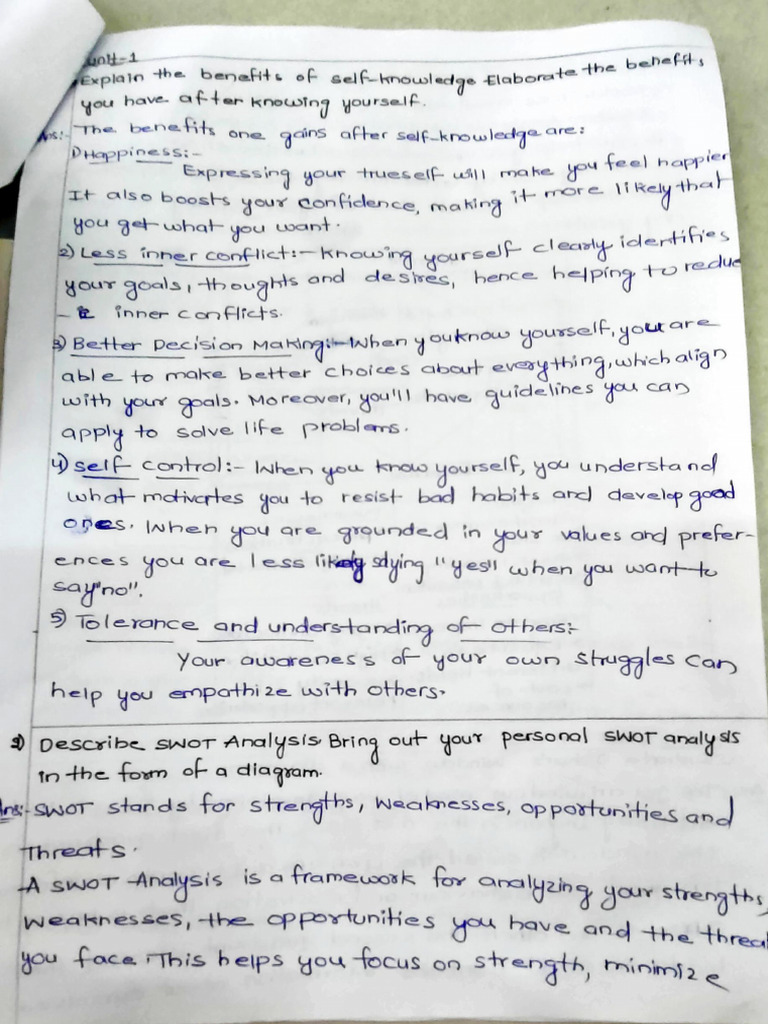 Unit-1
Explain the benefits of self-knowledge Elaborate the benefits
you have after knowing yourself.
Ans:- The benefits one gains after self-knowledge are:
1) Happiness:-
Expressing your trueself will make you feel happier
It also boosts your confidence, making it more likely that
you get what you want.
2) Less inner conflict:- Knowing yourself clearly identifies
your goals, thoughts and desires, hence helping to reduce
- inner conflicts.
3) Better Decision Making:- When you know yourself, you are
able to make better choices about everything, which align
with your goals. Moreover, you'll have guidelines you can
apply to solve life problems.
4) self control:- When you know yourself, you understand
what motivates you to resist bad habits and develop good
ones. When you are grounded in your values and prefer-
ences you are less likely saying "yes" when you want to
say "no".
5) Tolerance and understanding of others:-
Your awareness of your own struggles can
help you empathize with others.
2) Describe SWOT Analysis Bring out your personal SWOT analysis
in the form of a diagram.
Ans:- SWOT stands for strengths, Weaknesses, opportunities and
Threats.
A SWOT Analysis is a framework for analyzing your strengths,
weaknesses, the opportunities you have and the threat
you face. This helps you focus on strength, minimize